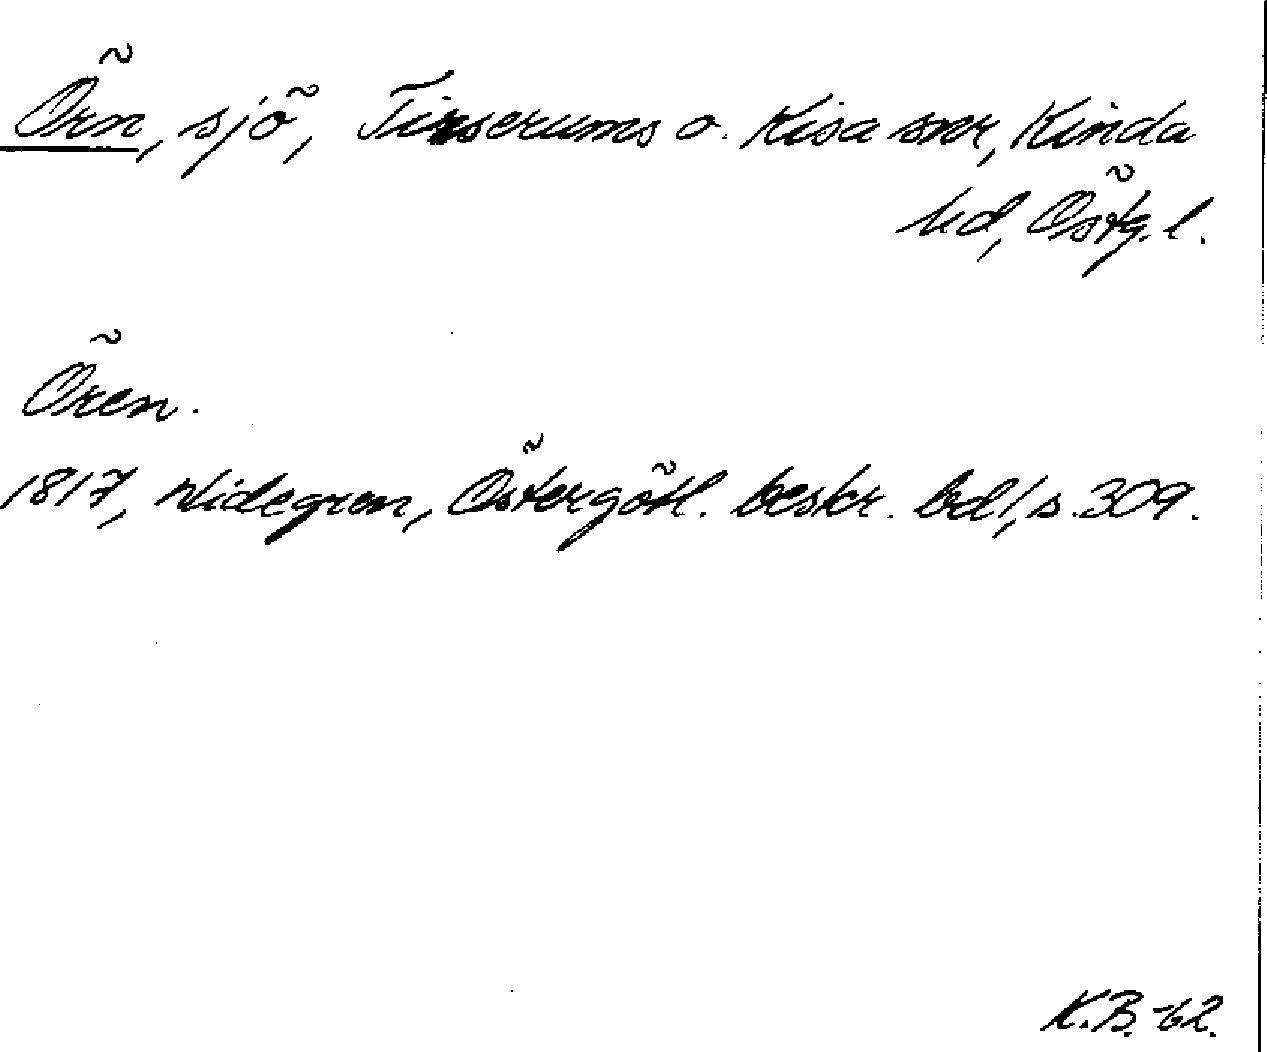 Örn, sjö, Tirserums o. Kisa snr, Kinda
hd, Östg. l.
Ören.
1817, Widegren, Östergötl. beskr. bd 1, s. 309.
K.B. -62.